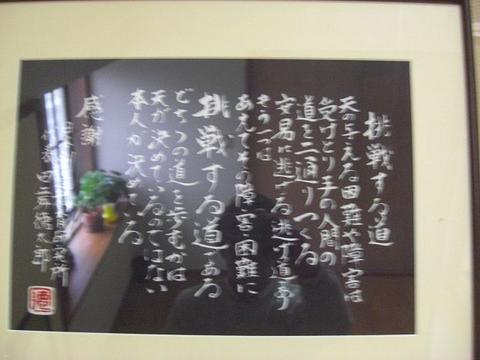 挑戦する道
天の与える困難や障害は
受けとり手の人間の
道を二通りつくる
安易に逃げる
もう一つは
あえてその障害困難に
挑戦する道である
どちらの道を歩むかは
天が決めているのではない
本人が決めている
感謝